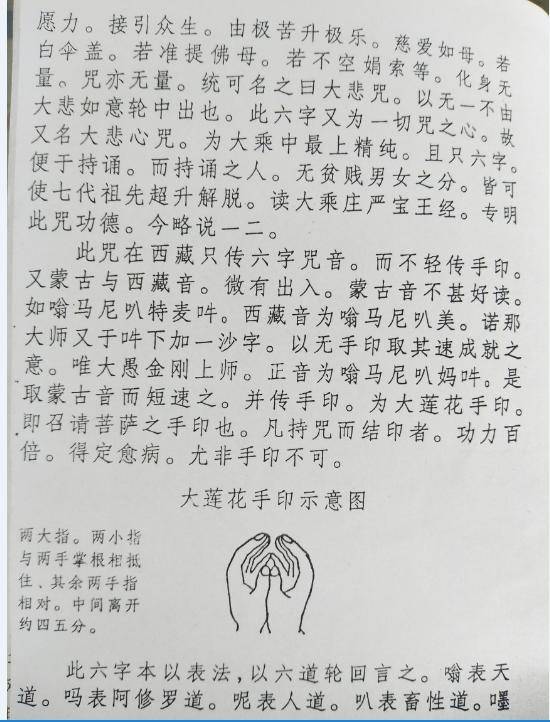 愿力。接引众生。由极苦升极乐。慈爱如母。若
白伞盖。若准提佛母。若不空娟索等。化身无
量、咒亦无量。统可名之曰大悲咒。以无一不由
大悲如意轮中出也。此六字又为一切咒之心。故
又名大悲心咒。为大乘中最上精纯。且只六字。
便于持诵。而持诵之人。无贫贱男女之分。皆可
使七代祖先超升解脱。读大乘庄严宝王经。专明
此咒功德。今略说一二。
此咒在西藏只传六字咒音。而不轻传手印。
又蒙古与西藏音。微有出入。蒙古音不甚好读。
如嗡马尼叭特麦吽。西藏音为嗡马尼叭美。诺那
大师又于吽下加一沙字。以无手印取其速成就之
意。唯大愚金刚上师。正音为嗡马尼叭妈吽。是
取蒙古音而短速之。并传手印。为大莲花手印。
即召请菩萨之手印也。凡持咒而结印者。功力百
倍。得定愈病。尤非手印不可。
大莲花手印示意图
两大指。两小指
与两手掌根相抵
住、其余两手指
相对。中间离开
约四五分。
此六字本以表法,以六道轮回言之。嗡表天
道。吗表阿修罗道。呢表人道。叭表畜性道。嚜